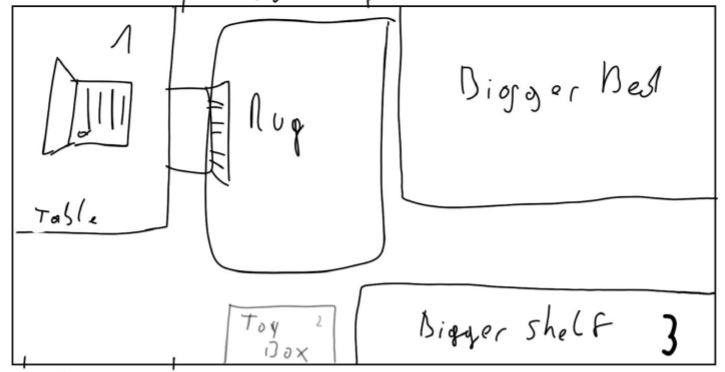 1
Table
Rug
Bigger Bed
Toy 2
Box
Bigger shelf 3